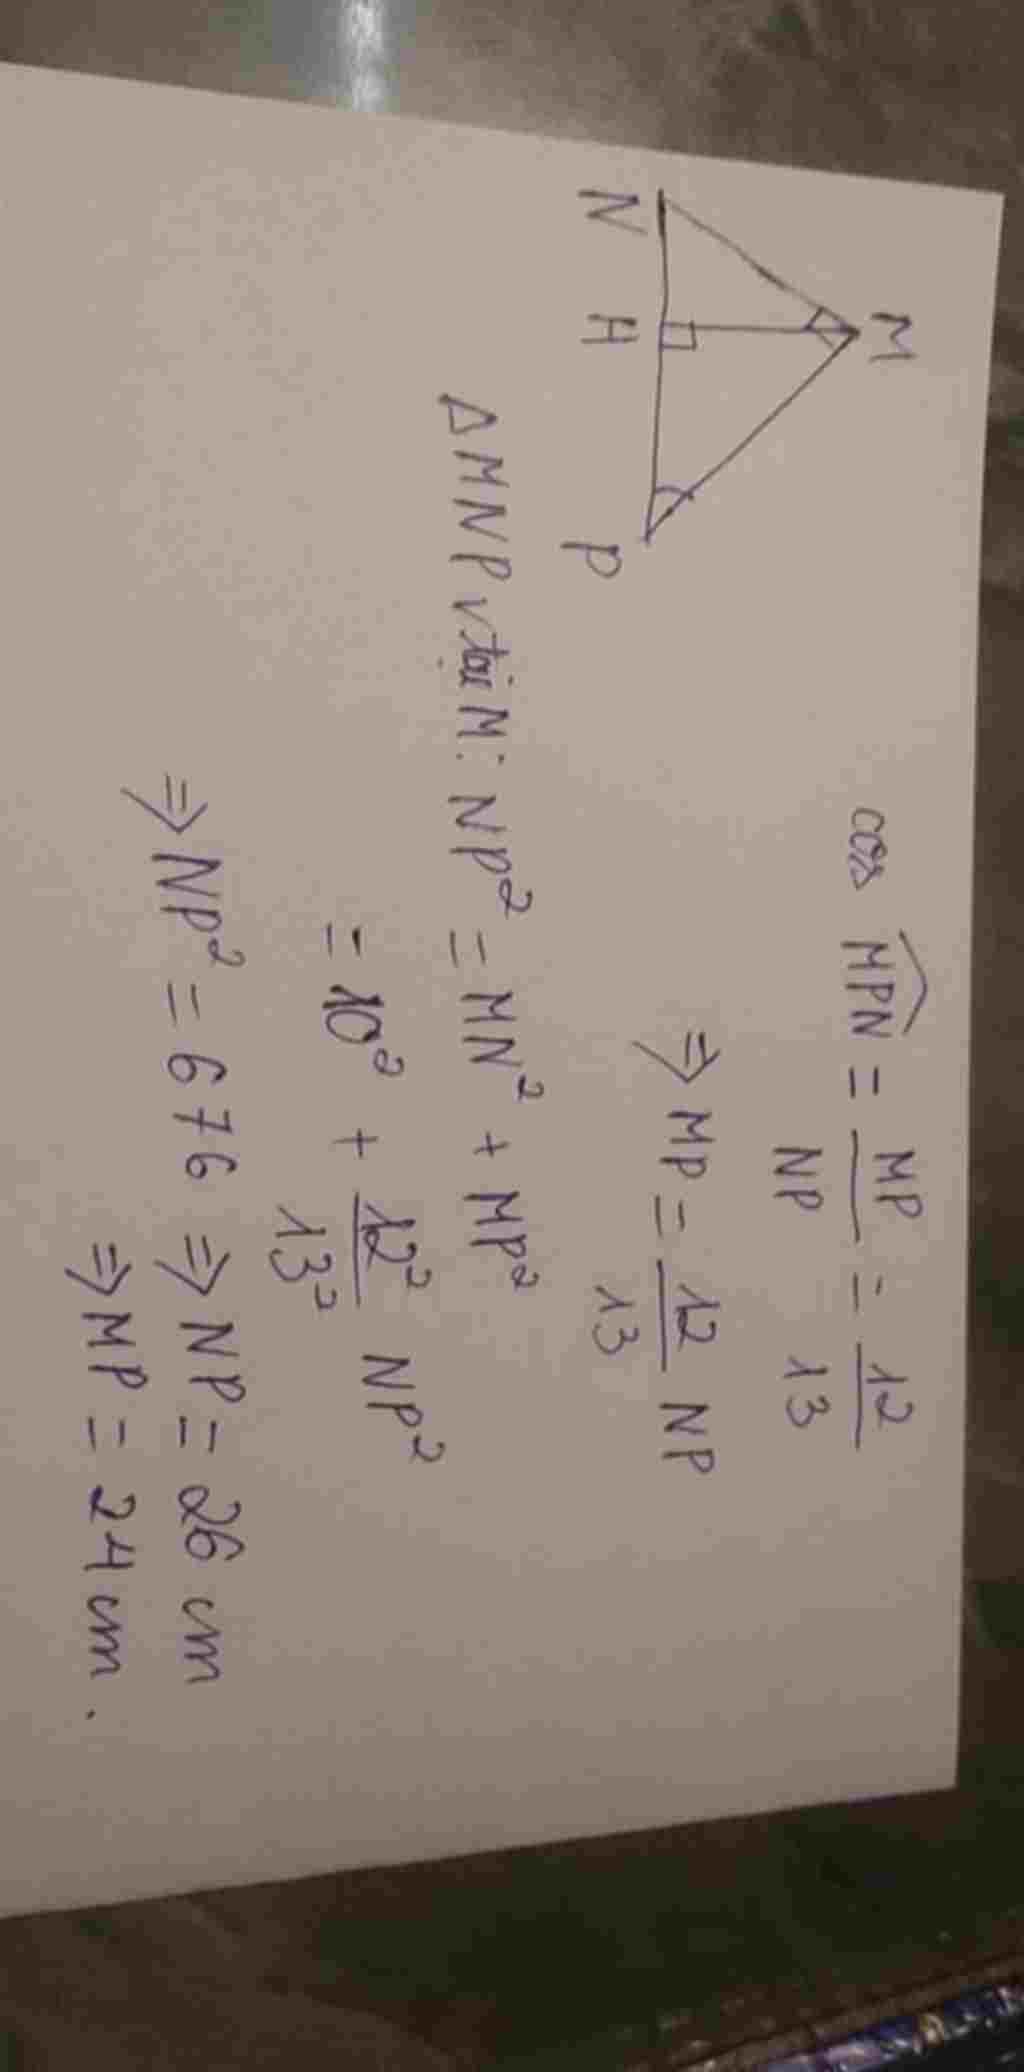 M
N H P
cos MPN = MP/NP = 12/13
⇒ MP = 12/13 NP
Δ MNP v tại M: NP² = MN² + MP²
= 10² + 12²/13² NP²
⇒ NP² = 676 ⇒ NP = 26 cm
⇒ MP = 24 cm.